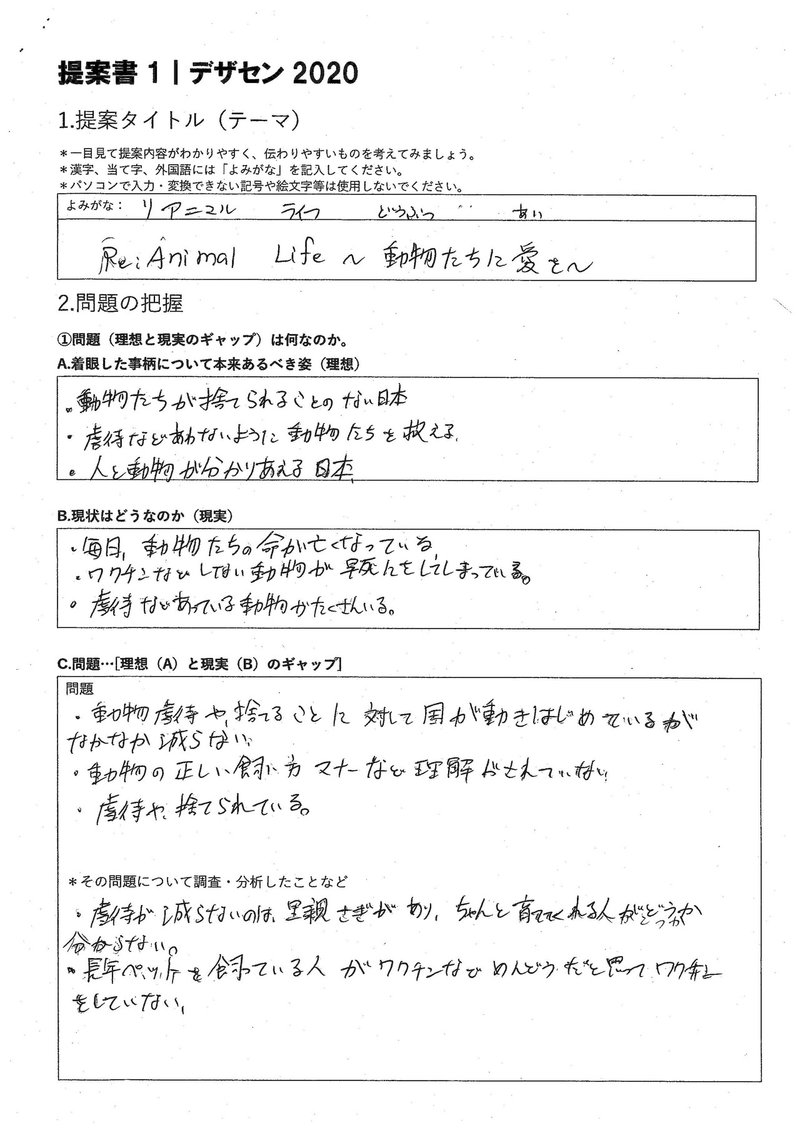 提案書 1｜デザセン 2020
1.提案タイトル（テーマ）
＊一目見て提案内容がわかりやすく、伝わりやすいものを考えてみましょう。
＊漢字、当て字、外国語には「よみがな」を記入してください。
＊パソコンで入力・変換できない記号や絵文字等は使用しないでください。
よみがな： リ アニマル ライフ どうぶつ あい
Re:Animal Life ～ 動物たちに愛を～
2.問題の把握
①問題（理想と現実のギャップ）は何なのか。
A.着眼した事柄について本来あるべき姿（理想）
・動物たちが捨てられることのない日本
・虐待などあわないように動物たちを救える。
・人と動物が分かりあえる日本。
B.現状はどうなのか（現実）
・毎日、動物たちの命が亡くなっている。
・ワクチンなどしない動物が早死んをしてしまっている。
・虐待などあっている動物がたくさんいる。
C.問題…[理想（A）と現実（B）のギャップ]
問題
・動物虐待や、捨てることに対して国が動きはじめているが
なかなか減らない。
・動物の正しい飼い方 マナーなど理解がされていない
・虐待や、捨てられている。
＊その問題について調査・分析したことなど
・虐待が減らないのは、里親さぎがあり、ちゃんと育ててくれる人がどうか
分からない。
・長年ペットを飼っている人がワクチンなどめんどうだと思ってワクチン
をしていない。